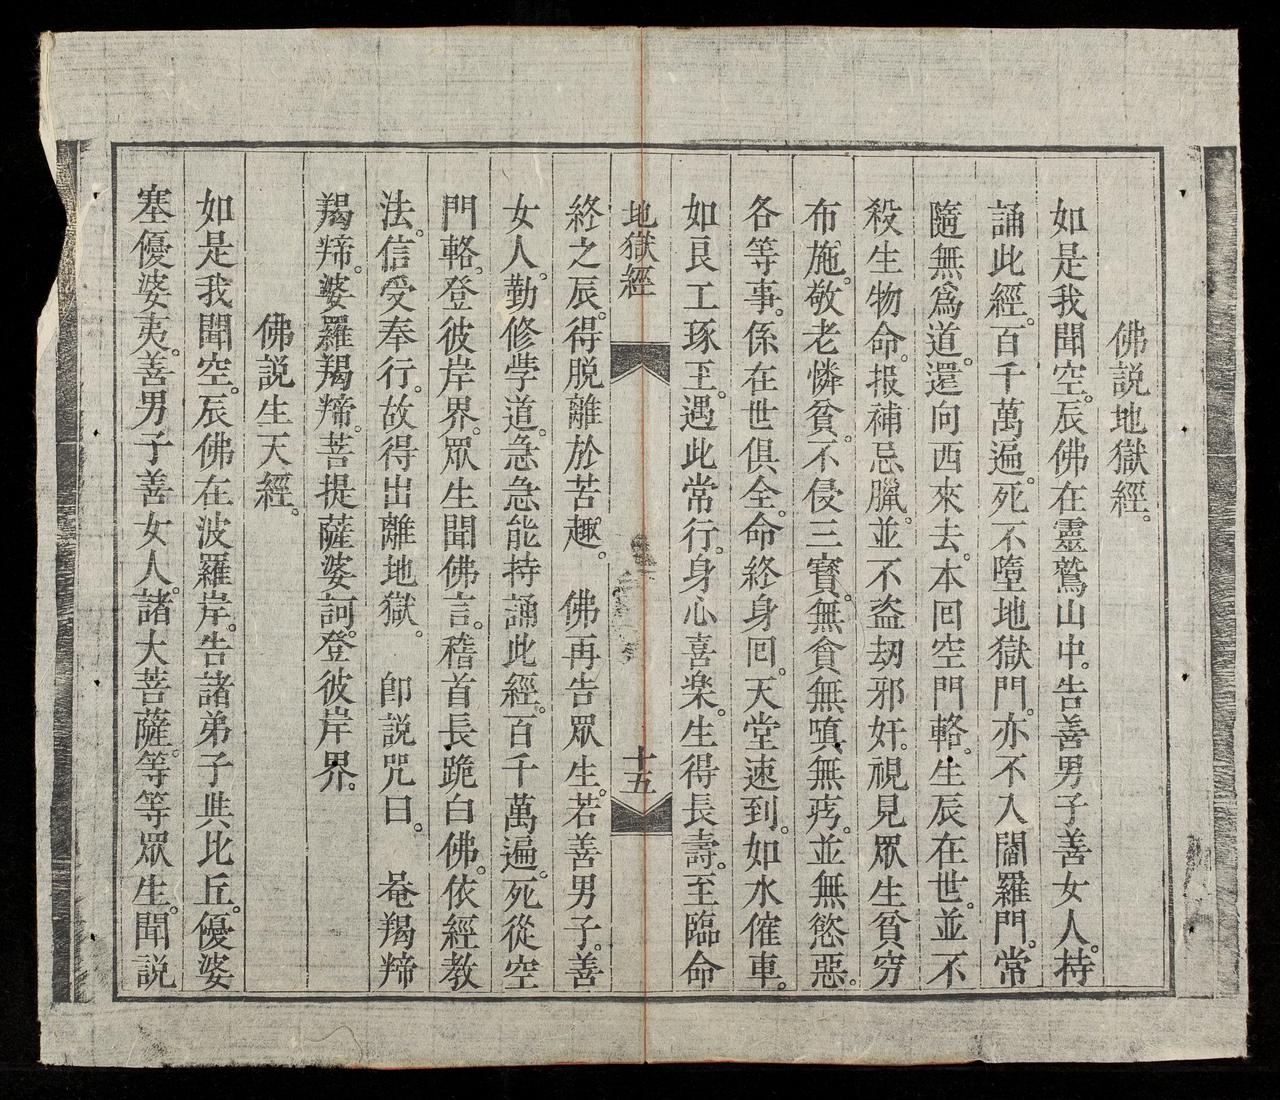 佛説地獄經。
如是我聞空。辰佛在靈鷲山中。告善男子善女人。持
誦此經。百千萬遍。死不墮地獄門。亦不入閻羅門。常
隨無為道。還向西來去。本回空門輅。生辰在世。並不
殺生物命。报補忌臘。並不盗刼邪奸。視見眾生貧穷
布施。敬老憐貧。不侵三寶。無貪無嗔無痴。並無慾惡。
各等事。係在世俱全。命終身回。天堂速到。如水催車。
如良工琢玉。遇此常行。身心喜楽。生得長壽。至臨命
地獄經
十五
終之辰。得脱離於苦趣。 佛再告眾生。若善男子。善
女人。勤修斈道。急急能持誦此經。百千萬遍。死從空
門輅。登彼岸界。眾生聞佛言。稽首長跪白佛。依經教
法。信受奉行。故得出離地獄。 即説咒曰。 菴羯諦
羯諦。婆羅羯諦。菩提薩婆訶。登彼岸界。
佛説生天經。
如是我聞空。辰佛在波羅岸。告諸弟子與比丘。優婆
塞優婆夷。善男子善女人。諸大菩薩。等等眾生。聞説